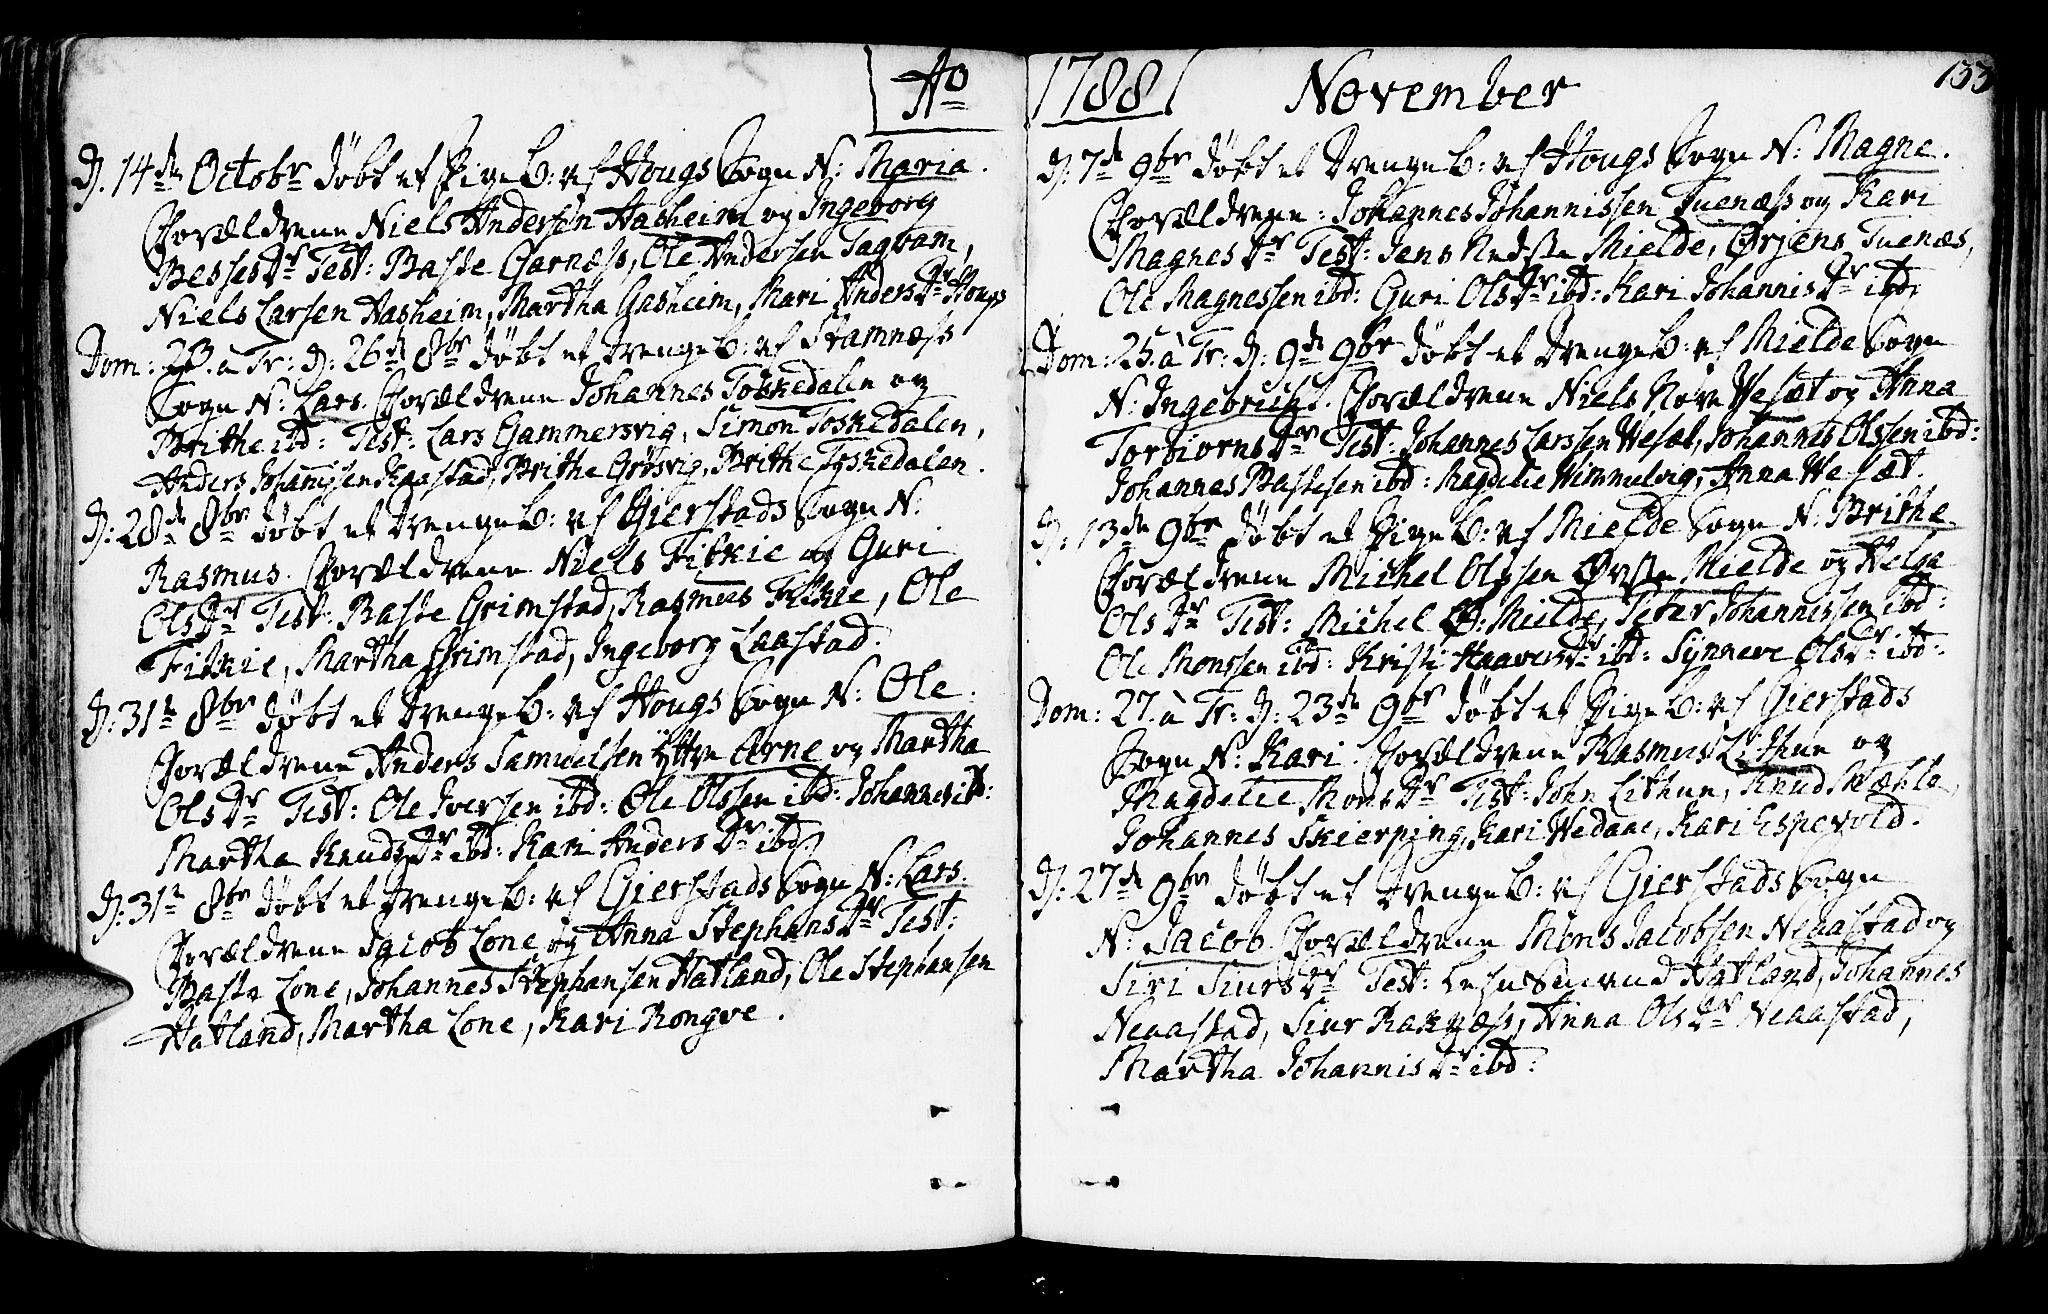 Ao
D. 14de Octobr døbt et Pigeb: af Hougs Sogn N: Maria.
Forældrene Niels Andersen Aasheim og Ingeborg
BessesDr Test: Baste Garnæss, Ole Andersen Tagvam,
Niels Larsen Aasheim, Martha Aasheim, Mari AndersDr Hougs
Dom: 23. a Tr: D. 26d 8br døbt et Drengeb: af Stamnæss
Sogn N: Lars. Forældrene Johannes Toskedalen og
Brithe ibd: Test: Lars Gammersvig, Simon Toskedalen,
Anders Johannissen Kaastad, Brithe Grøsvig, Brithe Toskedalen.
D: 28de 8br døbt et Drengeb: af Gierstads Sogn N:
Rasmus. Forældrene Niels Fitkie og Guri
OlsDr Test: Baste Grimstad, Rasmus Fitkie, Ole
Fitkie, Martha Grimstad, Ingeborg Laastad.
D: 31te 8br døbt et Drengeb: af Hougs Sogn N: Ole.
Forældrene Anders Samuelsen yttre Arne og Martha
OlsDr Test: Ole Iversen ibd: Ole Olssen ibd: Johannes ibd:
Martha KnudsDr ibd: Kari AndersDr ibd:
D: 31te 8br døbt et Drengeb: af Gierstads Sogn N: Lars.
Forældrene Jacob Lone og Anna StephansDr Test:
Baste Lone, Johannes Stephansen Hatland, Ole Stephansen
Hatland, Martha Lone, Kari Rongve.
1788 November 133
D: 7de 9br døbt et Drengeb: af Hougs Sogn N: Magne.
Forældrene: Johannes Johannissen Tuenæss og Kari
MagnesDr Test: Jens Nedste Mielde, Ørjens Tuenæs,
Ole Magnessen ibd: Guri OlsDr ibd: Kari JohannisDr ibd:
Dom: 25. à Tr: D: 9de 9br døbt et Drengeb: af Mielde Sogn
N: Ingebricht. Forældrene Niels Nore Vesæt og Anna
TorbiornsDr Test: Johannes Larssen Vesæt, Johannes Olssen ibd:
Johannes Bastesen ibd: Magdelie Himmelvig, Anna Vesæt.
D: 13de 9br døbt et Pigeb: af Mielde Sogn N: Brithe.
Forældrene Michel Olssen Øvste Mielde og Helga
OlsDr Test: Michel Ø: Mielde, Peter Johannessen ibd:
Ole Monssen ibd: Kristi HaaversDr ibd: Synneve OlsDr ibd:
Dom: 27. à Tr: D: 23de 9br døbt et Pigeb: af Gierstads
Sogn N: Kari. Forældrene Rasmus Lithun og
Magdelie MonsDr Test: John Lithun, Knud Mæhle,
Johannes Skierping, Kari Vedaae, Kari Espevold.
D: 27de 9br døbt et Drengeb: af Gierstads Sogn
N: Jacob. Forældrene Mons Jacobsen Neaastad og
Siri SiursDr Test: Lehnsmand Hatland, Johannes
Neaastad, Siur Raknæss, Anna OlsDr Neaastad,
Martha JohannisDr ibd: